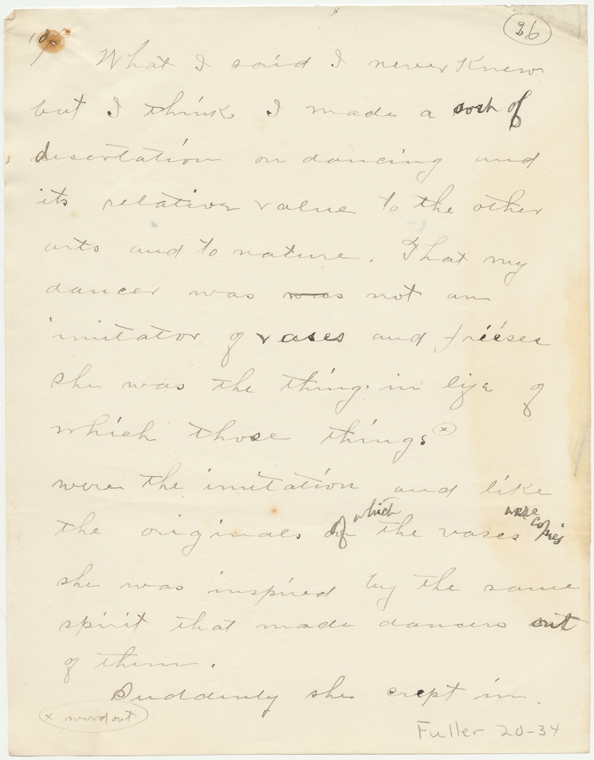 36
What I said I never Knew
but I think I made a sort of
desertation on dancing and
its relative value to the other
arts and to nature. That my
dancer was was not an
imitator of vases and friéses
she was the things in life of
which those things x
were the imitation and like
the originals of which the vases were copies
she was inspired by the same
spirit that made dancers out
of them.
Suddenly she crept in.
x word out
Fuller 20-34